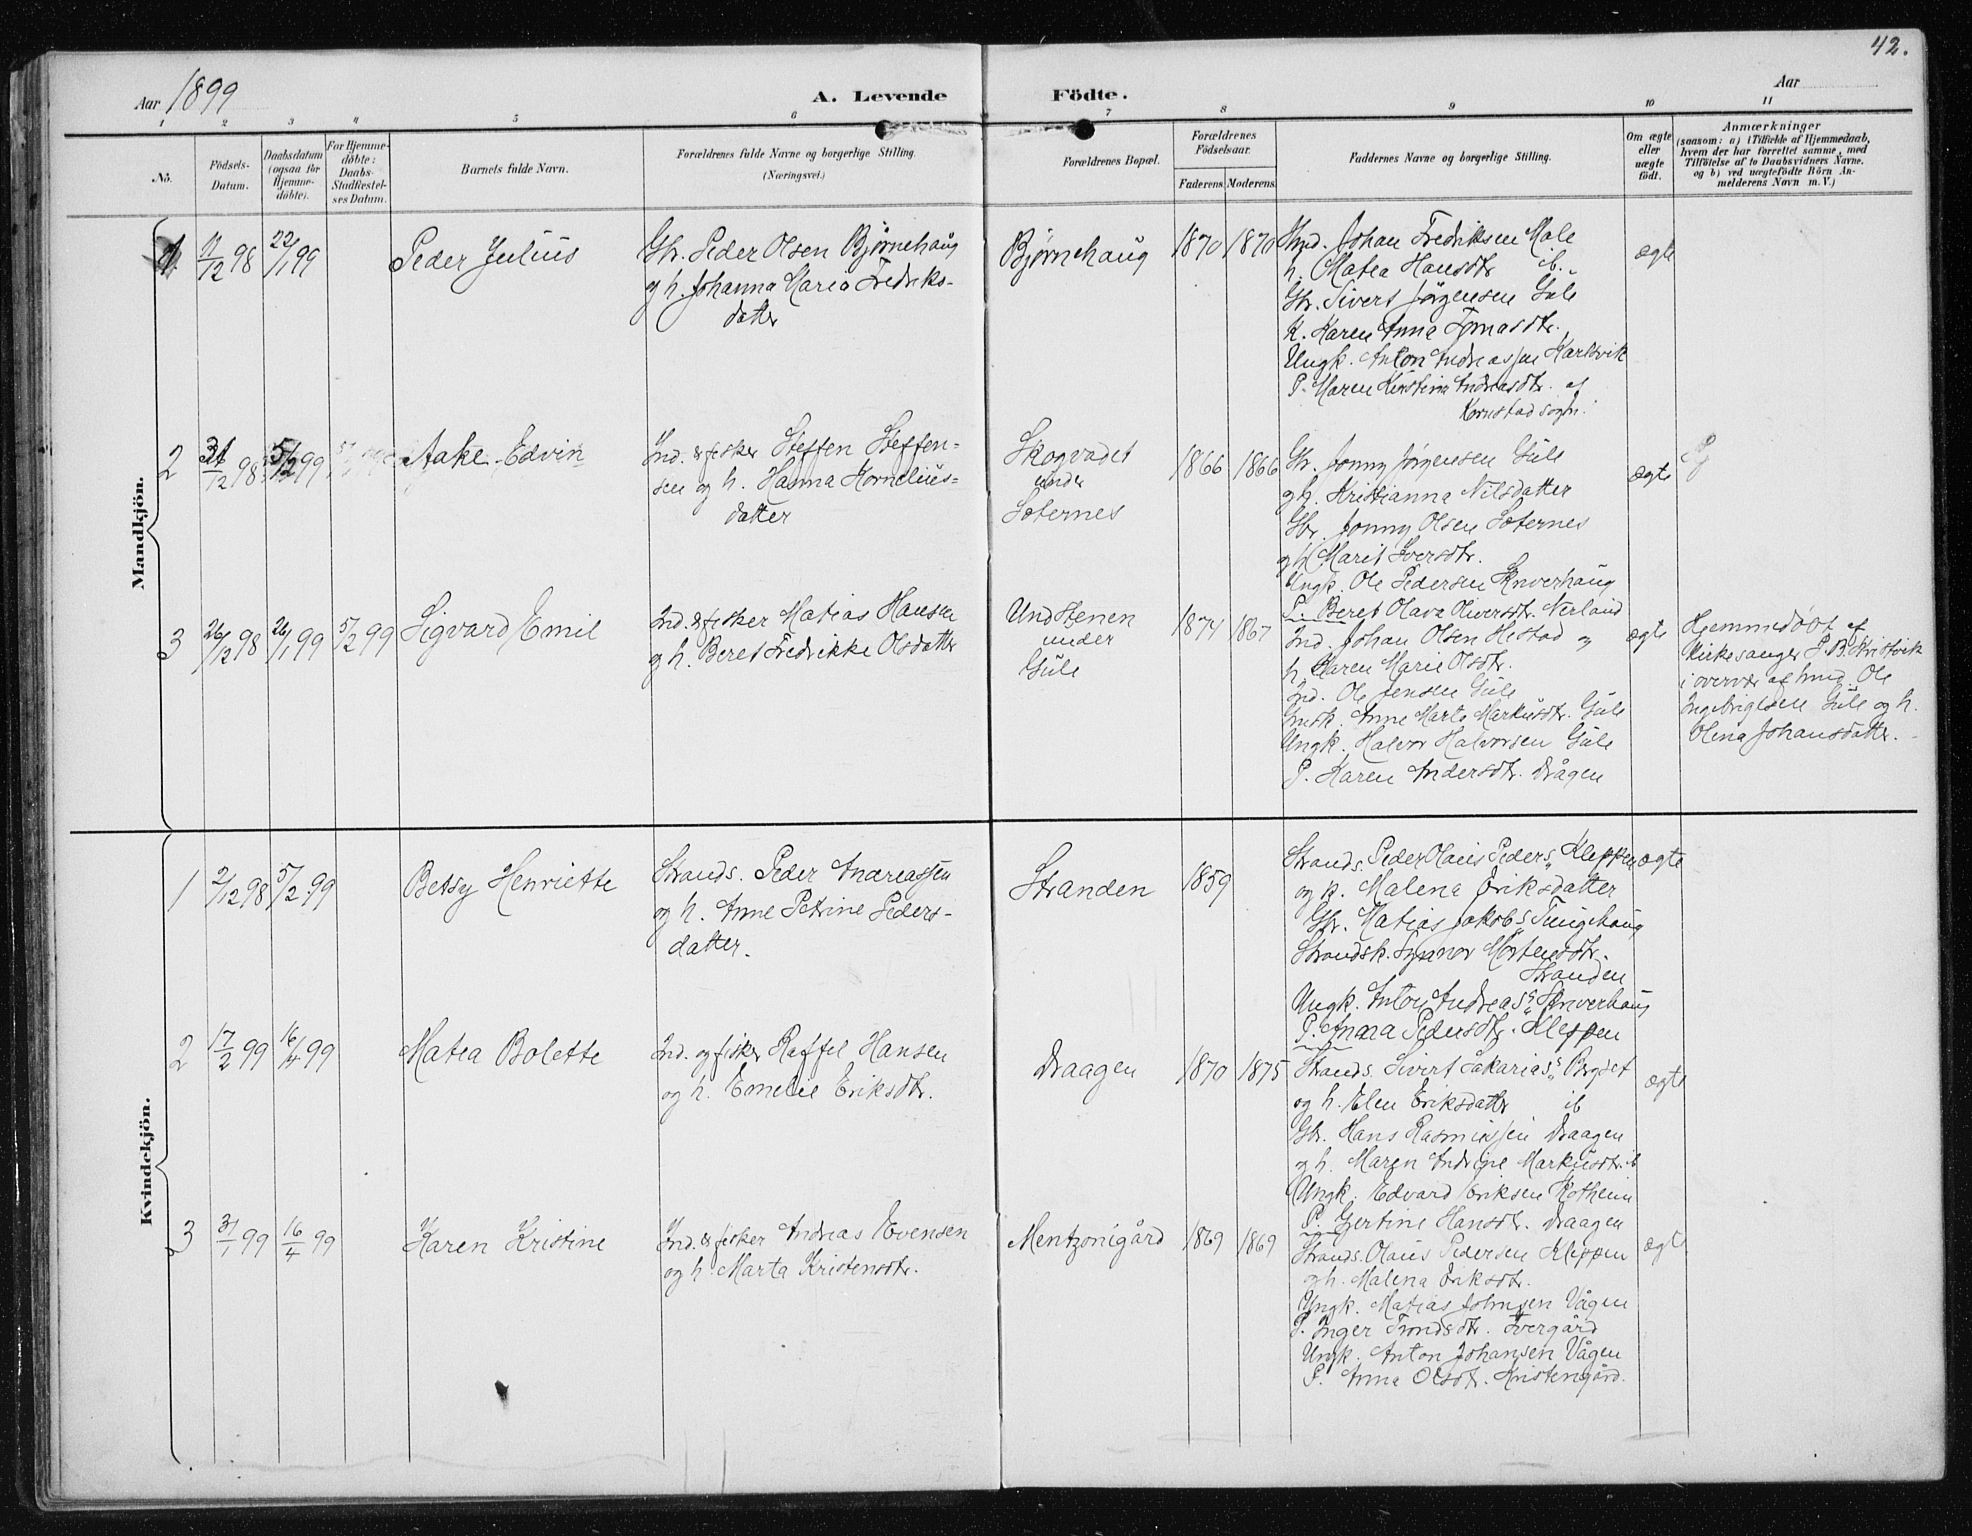 42.
Aar 1899
A. Levende Födte.
Aar
1 2 3 4 5 6 7 8 9 10 11
No.
Födsels-Datum.
Daabsdatum (ogsaa for Hjemmedöbte).
For Hjemmedöbte: Daabs-Stadfæstelses Datum.
Barnets fulde Navn.
Forældrenes fulde Navne og borgerlige Stilling.
(Næringsvei.)
Forældrenes Bopæl.
Forældrenes Födselsaar.
Faderens. Moderens.
Faddernes Navne og borgerlige Stilling.
Om ægte eller uægte födt.
Anmærkninger
(saasom: a) i Tilfælde af Hjemmedaab, hvem der har forrettet samme, med Tilföielse af to Daabsvidners Navne. og b) ved uægtefödte Börn Anmelderens Navn m. V.)
Mandkjön.
1. 11/12 98 22/1 99
Peder Julius
Gbr. Peder Olsen Bjørnehaug
og h. Johanna Maria Fredriks-
datter
Bjørnehaug
1870 1870
Ind. Johan Fredriksen Male
h. Matea Hansdtr ib.
Gbr. Sivert Jørgensen Gule
K. Karen Anna Tomasdtr.
Ungk. Anton Andreassen Karlsvik
P. Maren Kirstina Andreasdtr. af
Kornstad sogn.
ægte
2 31/12 98 5/2 99
Aake Edvin
Ind. & fisker Steffen Steffen-
sen og h. Hanna Kornelius-
datter
Skogvadet
under
Sæternes
1866 1866
Gbr. Jonny Jørgensen Gule
og h. Kristianna Nilsdatter
Gbr. Jonny Olsen Sæternes
og h. Marit Iversdtr.
Ungk. Ole Pedersen Knverhaug
P. Beret Olava Oliversdtr. Nerland
ægte
3 26/12 98 26/1 99 5/2 99
Sigvard Emil
Ind. & fisker Matias Hansen
og h. Beret Fredrikke Olsdatter
Und Stenen
under
Gule
1874 1867
Ind. Johan Olsen Hestad og
h. Karen Marie Olsdtr.
Ind. Ole Jensen Gule
Indk. Anne Marta Markusdtr. Gule
Ungk. Halvor Halvorsen Gule
P. Karen Andersdtr. Drågen
ægte
Hjemmedøbt af
Kirkesanger P. B. Kristvik
i overvær af Ind. Ole
Ingebrigtsen Gule og h.
Olina Johansdatter.
Kvindekjön.
1 2/12 98 5/2 99
Betsy Henriette
Strands. Peder Andreassen
og h. Anne Petrine Peders-
datter.
Stranden
1859
Strands. Peder Olaus Peders. Kleppen
og k. Malena Eriksdatter
Gbr. Matias Jakobs. Tungehaug
Strandsk. Synnør Mortensdtr.
Stranden
Ungk. Anton Andreass. Knverhaug
P. Anna Pedersdtr. Kleppen
ægte
2 17/2 99 16/4 99
Matea Bolette
Ind. og fisker Raffel Hansen
og h. Emelie Eriksdtr.
Draagen
1870 1875
Strands. Sivert Sakariass. Bergset
og h. Elen Eriksdatter ib
Gbr. Hans Rasmussen Draagen
og h. Maren Andrine Markusdtr. ib
Ungk. Edvard Eriksen Kotheim
P. Gjertine Hansdtr. Draagen
ægte
3 31/1 99 16/4 99
Karen Kristine
Ind. & fisker Andreas Evensen
og h. Marta Kristensdtr.
Mentzonigård
1869 1869
Strands. Olaus Pedersen Kleppen
og h. Malena Eriksdtr.
Ungk. Matias Johnsen Vågen
P. Inger Trondsdtr. Ivergård
Ungk. Anton Johansen Vågen
P. Anna Olsdtr. Kristengård.
ægte